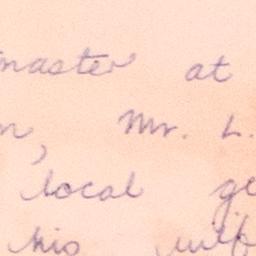 master at
n, Mr. L.
local ge
his wif